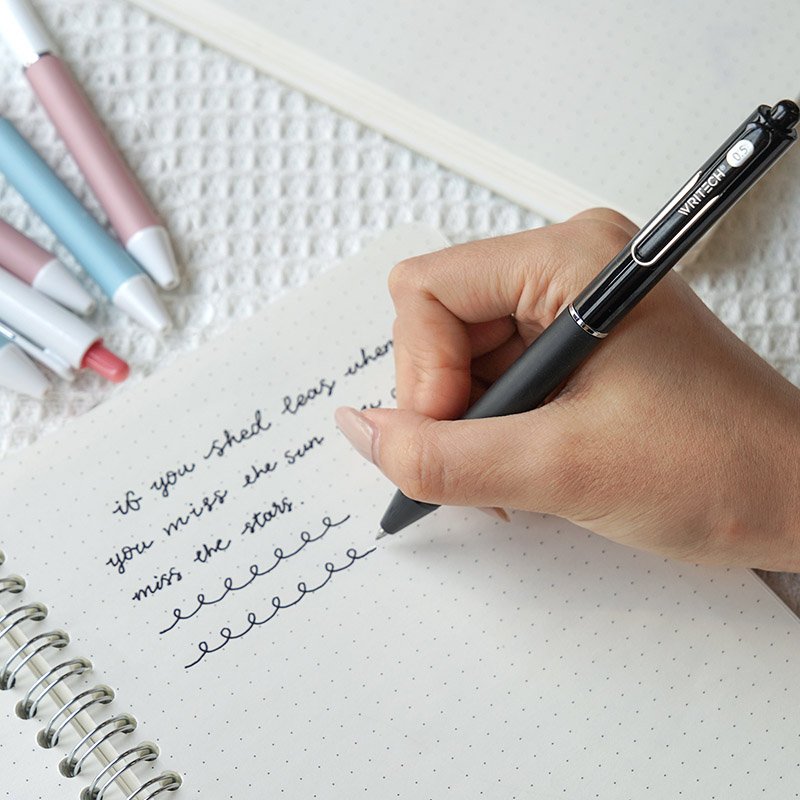 if you shed leas when
you miss the sun
miss the stars.
WRITECH
0.5